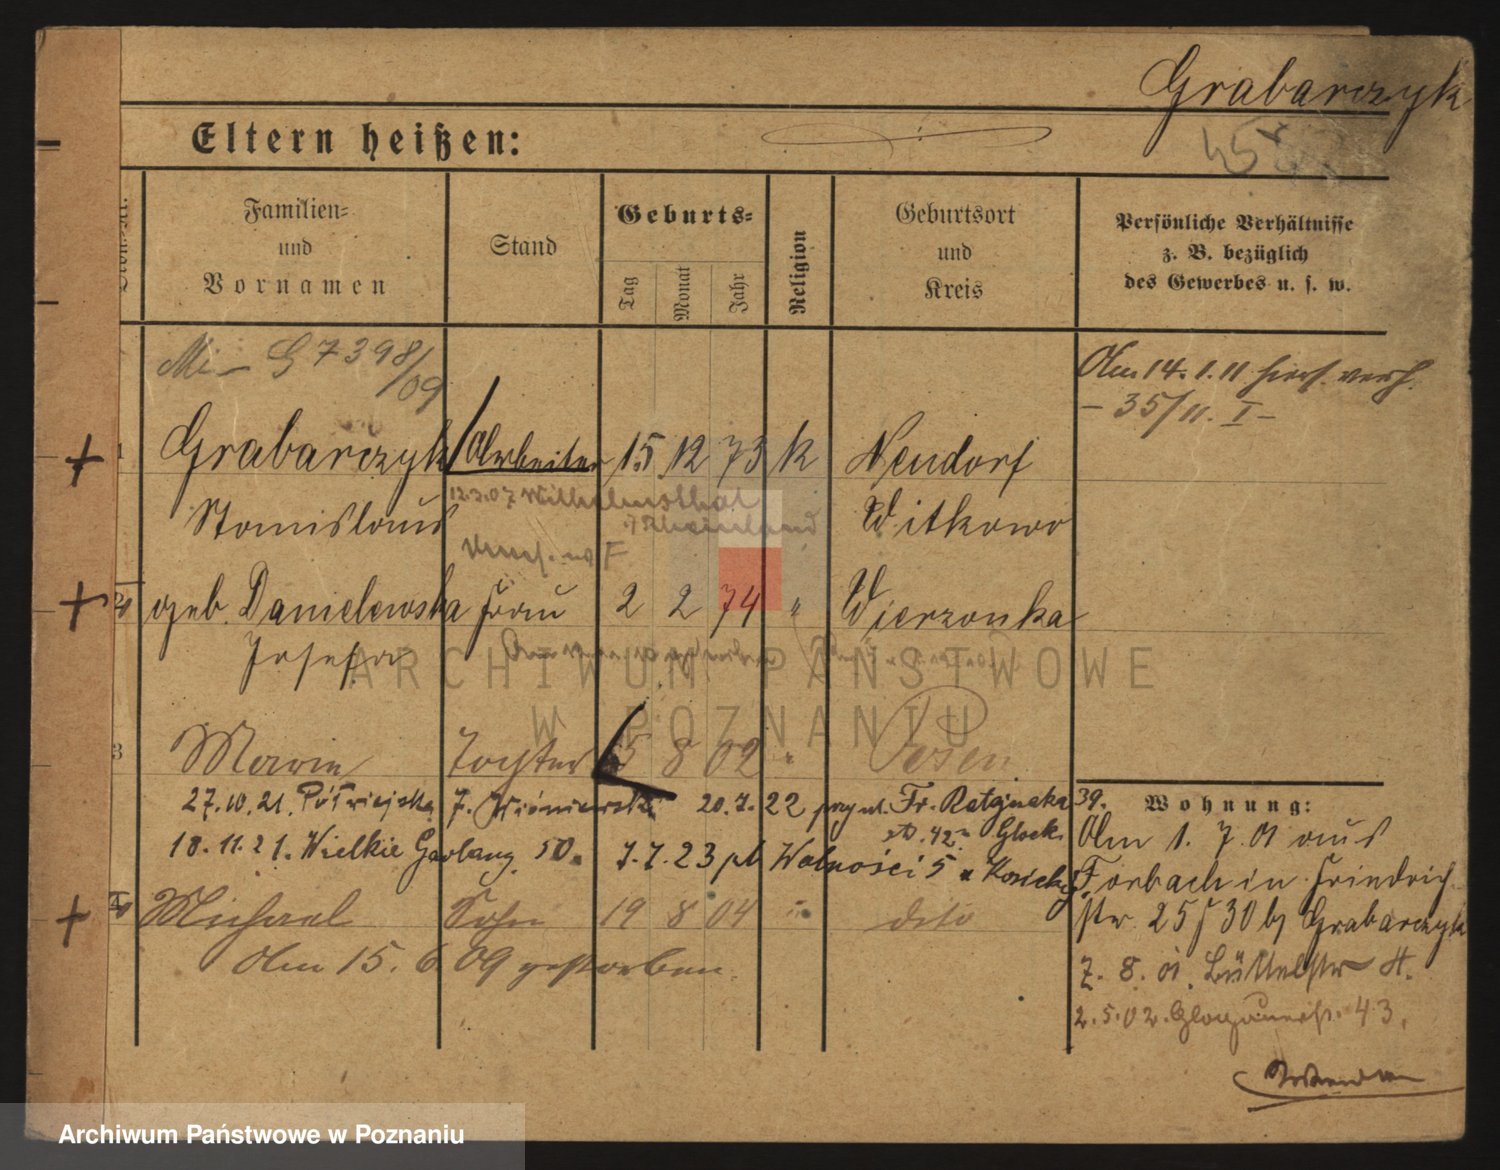 Grabarczyk
45
Eltern heißen:
Familien-
und
Vornamen
Stand
Geburts-
Tag
Monat
Jahr
Religion
Geburtsort
und
Kreis
Persönliche Verhältnisse
z. B. bezüglich
des Gewerbes u. s. w.
G 7398/09
Am 14.1.11 hier verh.
- 35/11. I -
1 Grabarczyk Arbeiter 15 12 73 k Neudorf
Stanislaus Witkowo
12.3.07 Wilhelmsthal
Rheinland
2 geb. Danielewska Frau 2 2 74 " Wierzonka
Josefa
3 Marie Tochter 5 8 02 " Posen
27.10.21. Półwiejska 7. Wiśniewski 20.7.22 Fr. Ratajczaka 39.
18.11.21. Wielkie Garbary 50. 7.7.23 pl Wolności 5
4 Michael Sohn 19 8 04 " dito
Am 15. 6. 09 gestorben.
Wohnung:
Am 1. 7. 01 aus
Forbach in Friedrich-
str. 25/30 bj Grabarczyk
7. 8. 01. Büttelstr 4.
2.5.02. Glogauerstr. 43.
ARCHIWUM PAŃSTWOWE
W POZNANIU
Archiwum Państwowe w Poznaniu